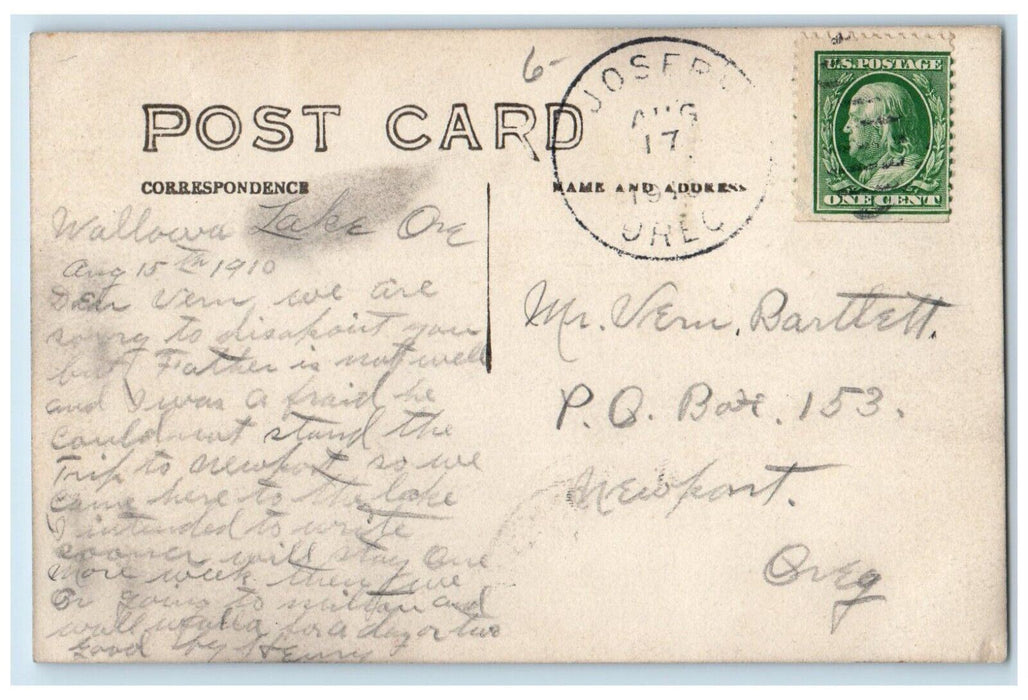 6-
JOSEPH
AUG
17
1910
OREG.
U.S. POSTAGE
ONE CENT
POST CARD
CORRESPONDENCE
NAME AND ADDRESS
Wallowa Lake Ore
Aug 15th 1910
Dear Vern, we are
sorry to disapoint you
but Father is not well
and I was a fraid he
could not stand the
Trip to Newport so we
came here to the lake
I intended to write
sooner will stay one
more week then we
or going to milton and
wall walla for a day or two
Good by Henry
Mr. Vern. Bartlett.
P.O. Box. 153.
Newport.
Oreg